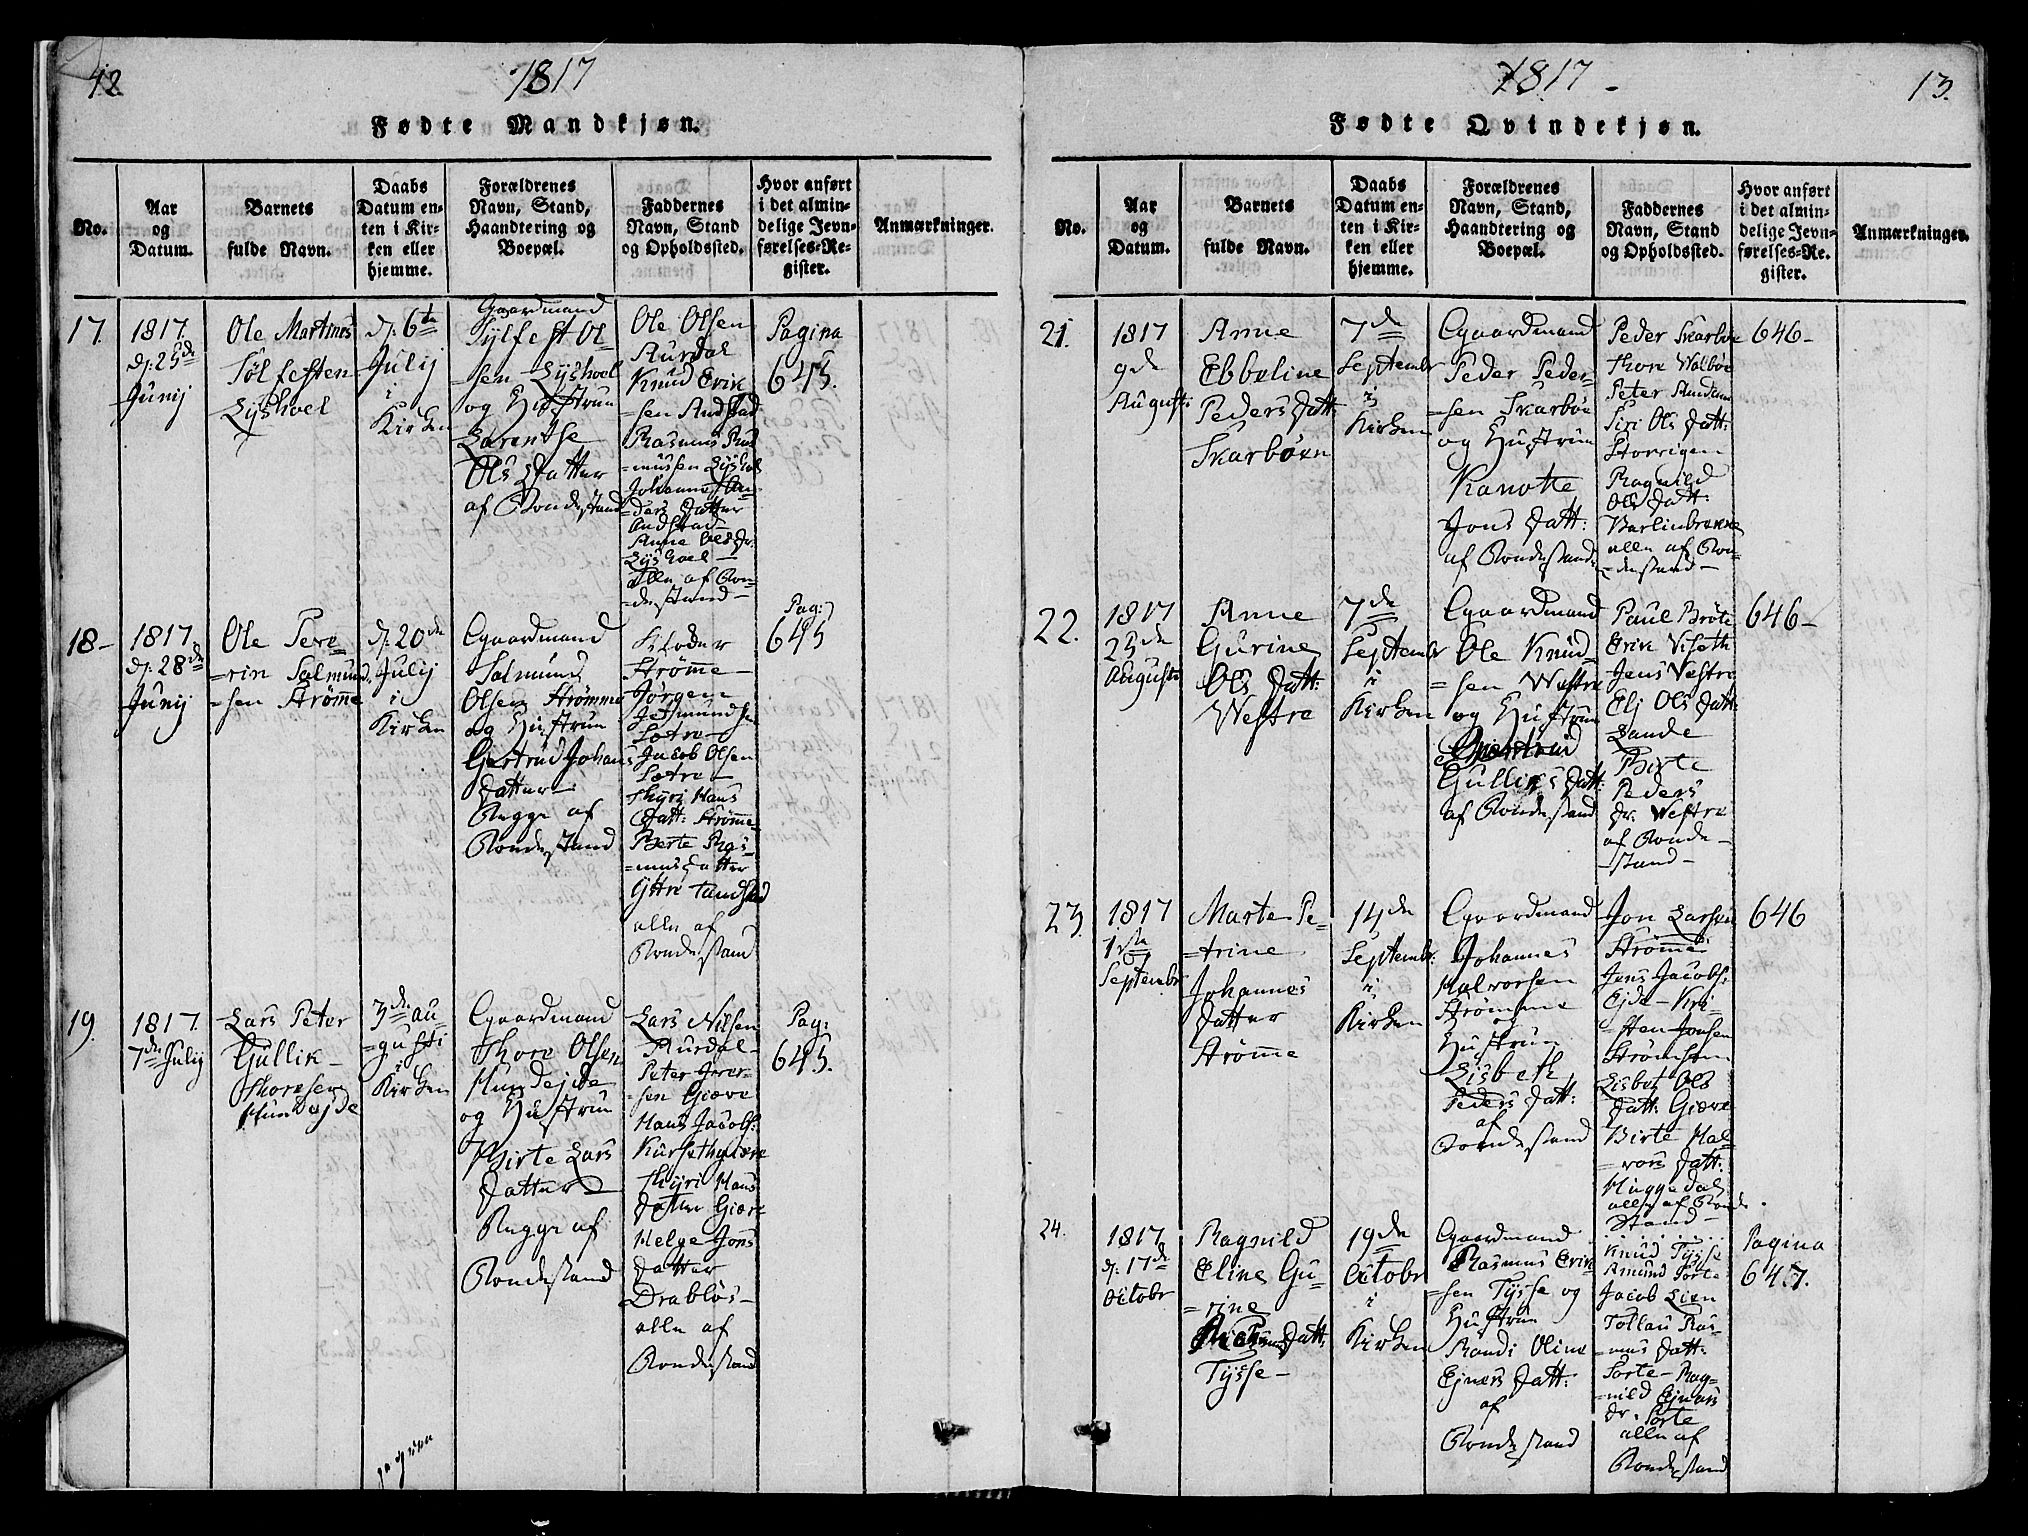 12.
1817
Fødte Mandkjøn.
No.
Aar
og
Datum.
Barnets
fulde Navn.
Daabs
Datum en-
ten i Kir-
ken eller
hjemme.
Forældrenes
Navn, Stand,
Haandtering og
Boepæl.
Faddernes
Navn, Stand
og Opholdssted.
Hvor anført
i det almin-
delige Jevn-
førelses-Re-
gister.
Anmærkninger.
17.
1817.
d: 25de
Junij
Ole Martinus
Tølfesten
Lyshoel
d: 6te
Julij
i
Kirken
Gaardmand
Tylfest Ol-
=sen Lyshoel
og Hustrue
Larentse
Ols Datter
af Bondestand
Ole Olsen
Aurdal
Knud Erik
=sen Andstad
Rasmus Ras
=mussen Lyshol
Johanne An-
=ders Datter
Andstad
Anne Ols Dr.
Lyshoel
alle af Bon=
=destand
Pagina
645.
18-
1817
d: 28de
Junij
Ole Pere
=rin Salmund
=sen Strømme
d: 20de
Julij
i
Kirken
Gaardmand
Salmund
Olsen Strømme
og Hustrue
Gertrud Johans
Datter
Regge af
Bondestand
Strømme
Jørgen
Sætre
Jacob Olsen
Sætre
Thyri Hans
Datt: Strømme
Berte Ras-
=mus Datter
Yttre Tandstad
alle af
Bondestand
Pag:
645
19.
1817.
7de Julij
Lars Peter
Gullik
Thoresen
Hundejde
3de au-
=gusti
i
Kirken
Gaardmand
Thore Olsen
Hundejde
og Hustrue
Birte Lars
Datter
Regge af
Bondestand
Lars Nilsen
Aurdal
Peter Iver-
=sen Giære
Hans Jacobs:
Thyri Hans
Datter Giære
Helge Jons
Datter
Drabløs
alle af
Bondestand
Pag:
645.
1817
13.
Fødte Qvindekjøn.
No.
Aar
og
Datum.
Barnets
fulde Navn.
Daabs
Datum en-
ten i Kir-
ken eller
hjemme.
Forældrenes
Navn, Stand,
Haandtering og
Boepæl.
Faddernes
Navn, Stand
og Opholdssted.
Hvor anført
i det almin-
delige Jevn-
førelses-Re-
gister.
Anmærkninger.
21.
1817
9de
August:
Anne
Ebbeline
Peders Datt:
Skarbøen
7de
Septembr
i
Kirken
Gaardmand
Peder Peder-
=sen Skarbøe
og Hustrue
Kanotte
Jons Datt:
af Bondestand
Peder Skarbøe
Thore Walbøe
Peter
Siri Ols Datt:
Storrigen
Ragnild
Ols Datt:
alle af Bon=
=destand
646-
22.
1817
25de
August:
Anne
Gurine
Ols Datt:
Westre
7de
Septembr
i
Kirken
Gaardmand
Ole Knud-
=sen Westre
og Hustrue
Gulliks Datt:
af Bondestand
Paul Brøte
Erik Viseth
Jens Vestre
Eli Ols Datt
Lande
Birte
Peders
Dr. Westre
af Bonde-
stand
646-
23.
1817
1ste
Septembr
Marte Pe-
=trine
Johannes
Datter
Strømme
14de
Septembr.
i
Kirken
Gaardmand
Johannes
Halvorsen
Strømme
Hustrue
Lisbeth
Peders Datt:
af
Bondestand
Jon Larsen
Strømme
Jens Jacobs:
Ejde- Kri-
=sten Jonsen
Strømmen
Lisbet Ols
Datt: Giære
Birte Hal-
=vors Datt:
Huggedal
alle af Bonde
Stand
646
24.
1817
d: 17de
Octobr
Ragnild
Eline Gu-
=rine
Datt:
Tysse-
19de
Octobr
i
Kirken
Gaardmand
Rasmus Erik
=sen Tysse og
Hustrue
Randi Oline
Ejners Datt:
af
Bondestand
Knud Tysse
Amund Torte
Jacob Lien
Tollau Ras-
=mus Datt:
Torte- Rag-
=nild Ejnars
Dr. Torte
alle af
Bondestand
Pagina
647.